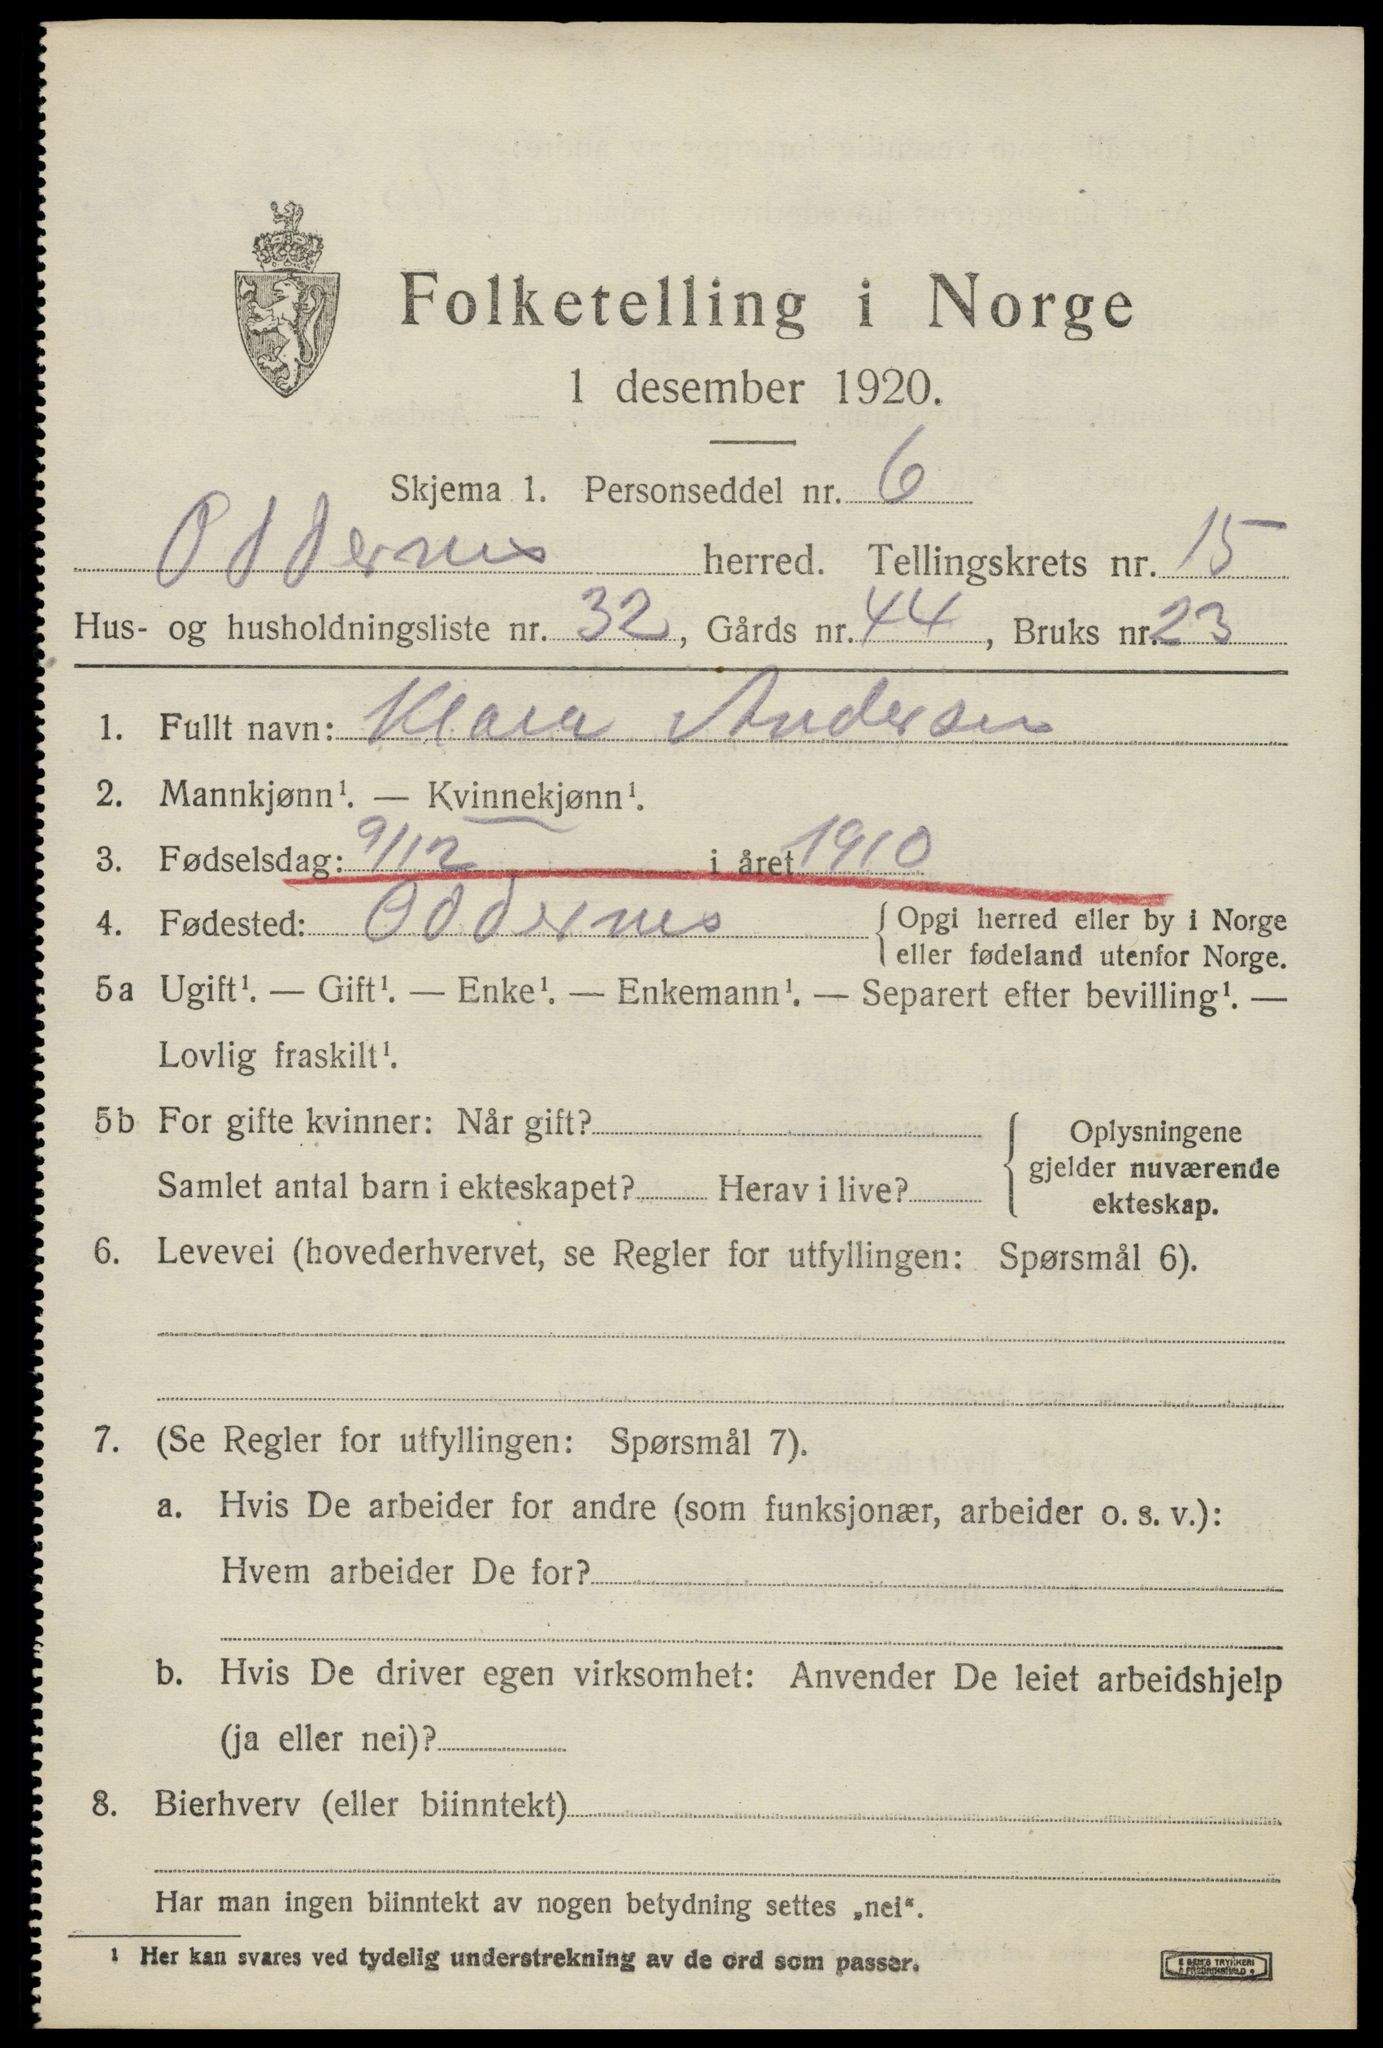 Folketelling i Norge
1 desember 1920.
Skjema 1. Personseddel nr. 6
Oddernes herred. Tellingskrets nr. 15
Hus- og husholdningsliste nr. 32, Gårds nr. 44, Bruks nr. 23
1. Fullt navn: Klara Andersen
2. Mannkjønn¹. — Kvinnekjønn¹.
3. Fødselsdag: 9/12 i året 1910
4. Fødested: Oddernes { Opgi herred eller by i Norge
eller fødeland utenfor Norge.
5a Ugift¹. — Gift¹. — Enke¹. — Enkemann¹. — Separert efter bevilling¹. —
Lovlig fraskilt¹.
5b For gifte kvinner: Når gift?
Samlet antal barn i ekteskapet? Herav i live?
{ Oplysningene
gjelder nuværende
ekteskap.
6. Levevei (hovederhvervet, se Regler for utfyllingen: Spørsmål 6).
7. (Se Regler for utfyllingen: Spørsmål 7).
a. Hvis De arbeider for andre (som funksjonær, arbeider o. s. v.):
Hvem arbeider De for?
b. Hvis De driver egen virksomhet: Anvender De leiet arbeidshjelp
(ja eller nei)?
8. Bierhverv (eller biinntekt)
Har man ingen biinntekt av nogen betydning settes „nei“.
¹ Her kan svares ved tydelig understrekning av de ord som passer.
E SEM'S TRYKKERI
FREDRIKSHALD